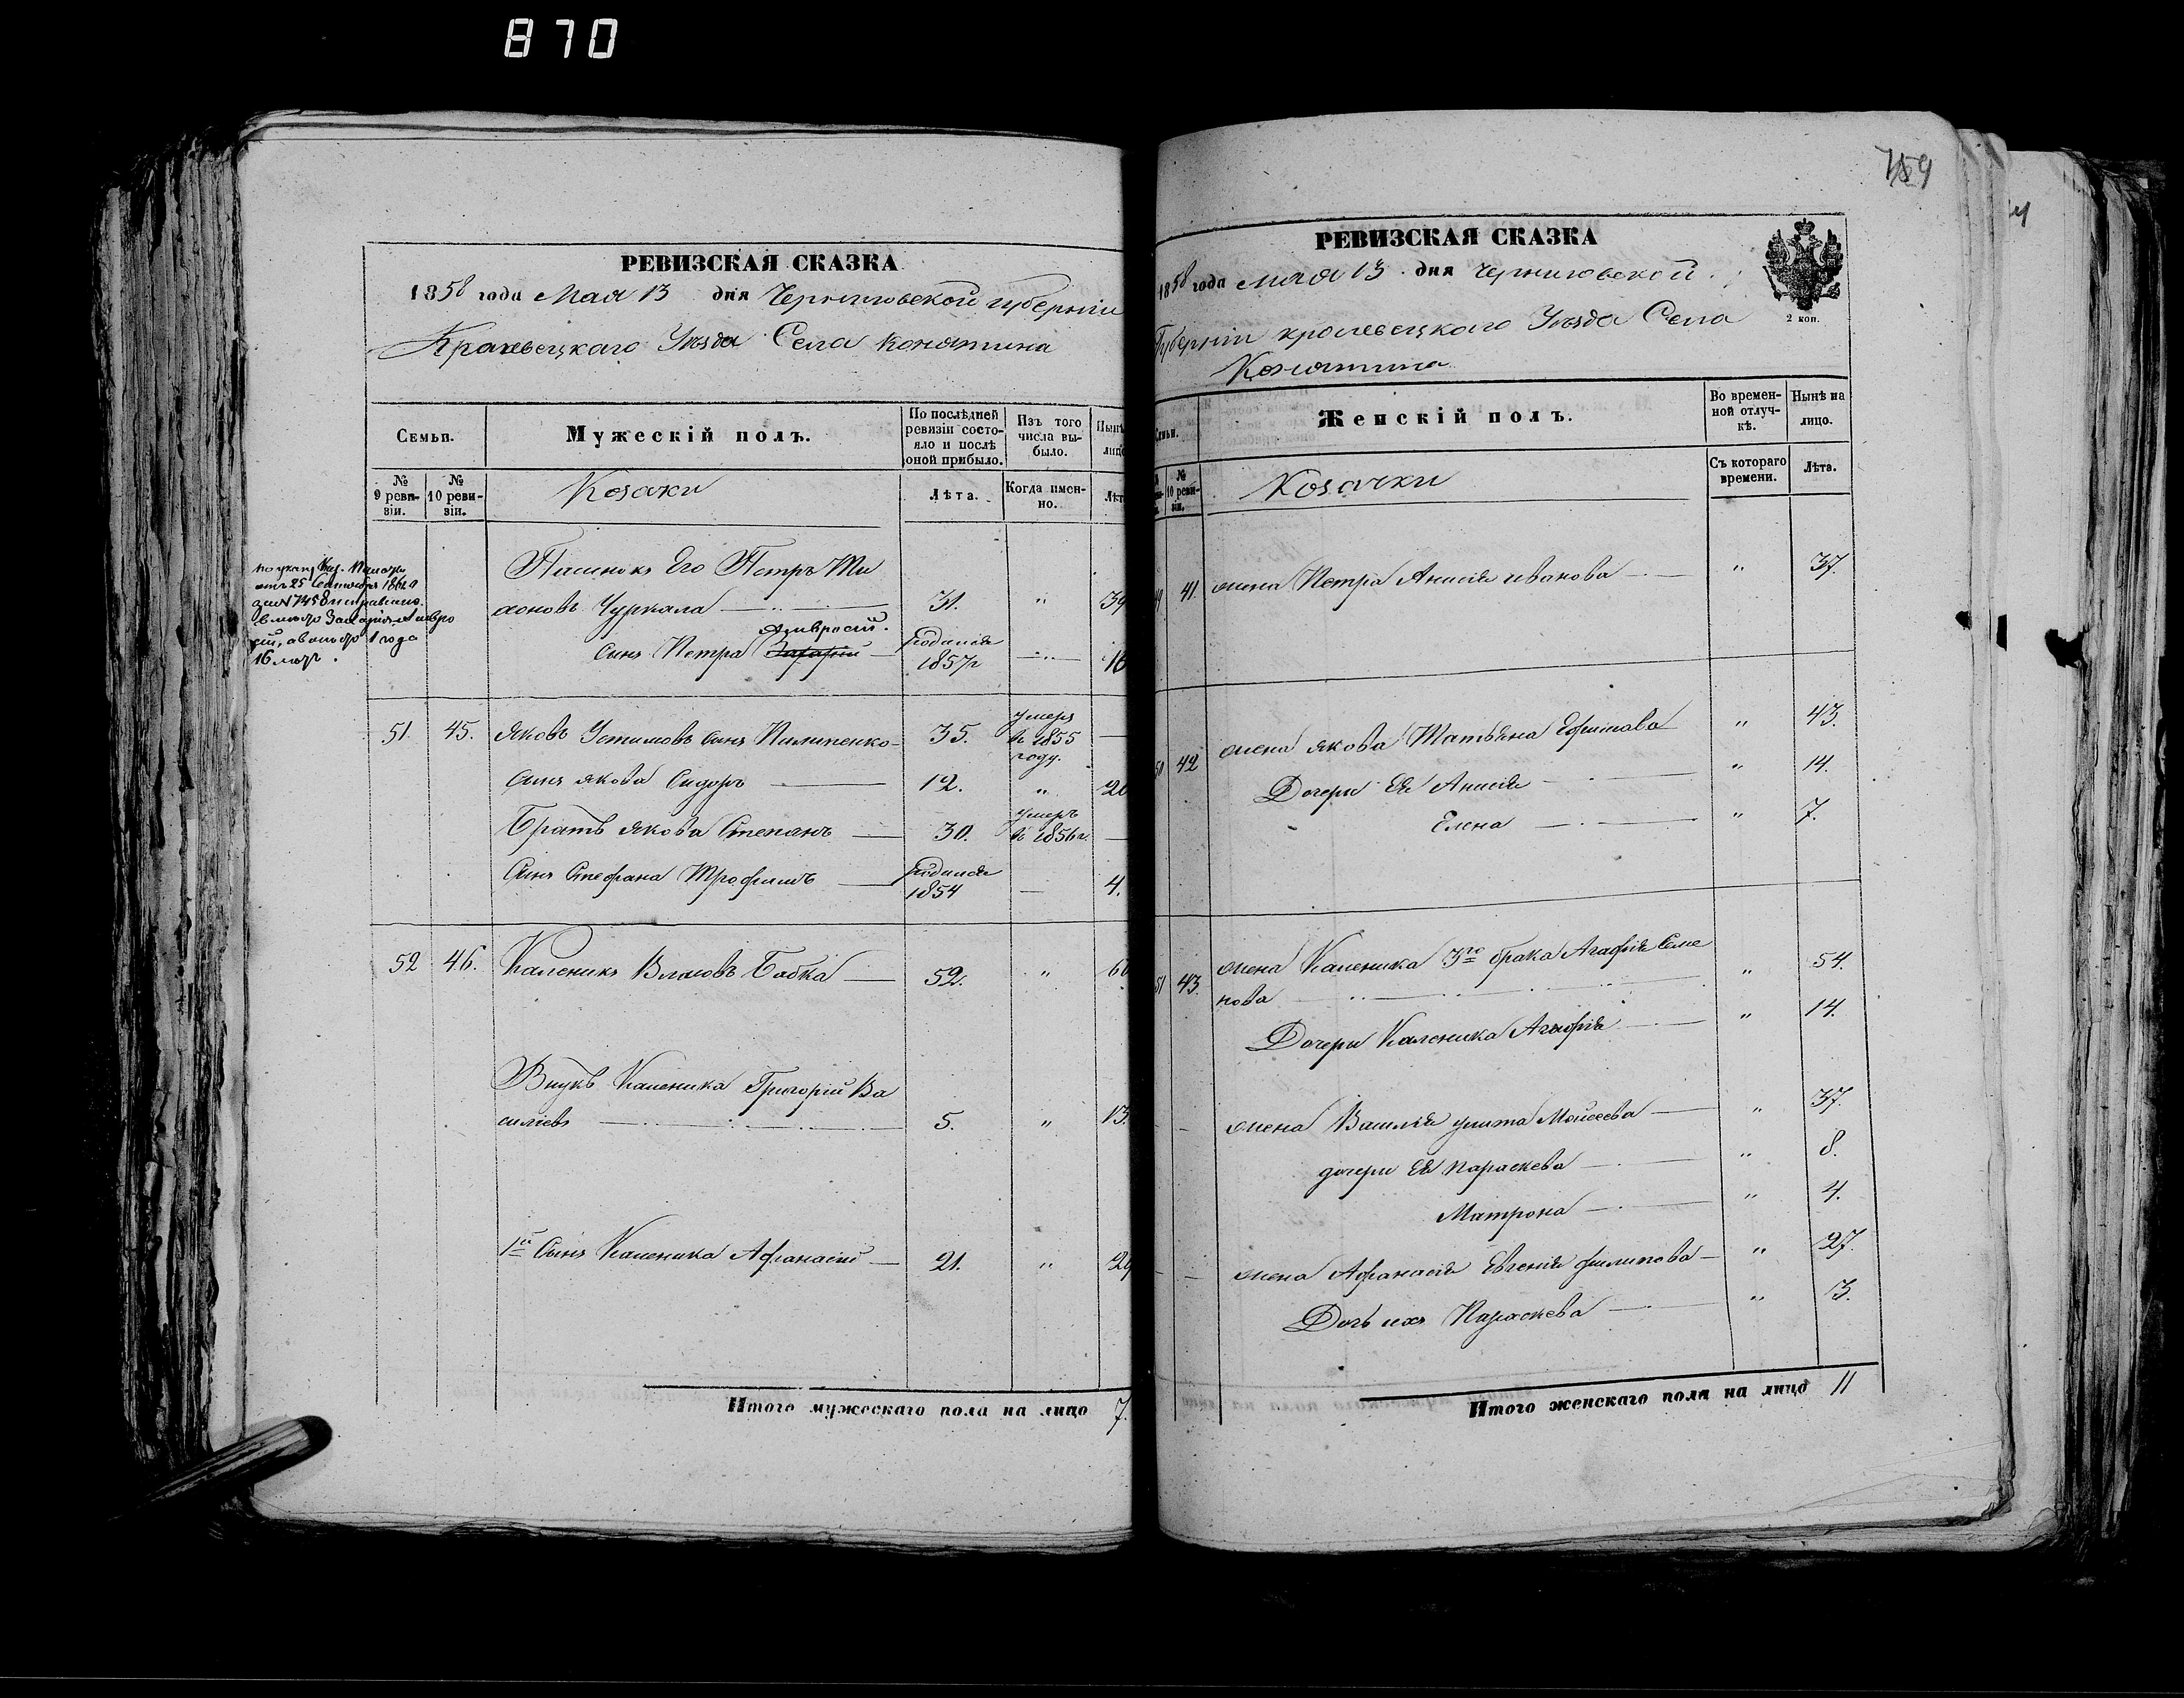 870
РЕВИЗСКАЯ СКАЗКА
1858 года Мая 13 дня Черниговской губернии
Кролевецкаго Уѣзда Села Конятина
Семьи.
Мужескій полъ.
По послѣдней ревизіи состояло и послѣ оной прибыло.
Изъ того числа выбыло.
Нынѣ
лицо
№ 9 ревизіи.
№ 10 ревизіи.
Козаки
Лѣта.
Когда именно.
Лѣт
по указу Каз. Палаты
отъ 25 Сентября
за № 7458 исправлено
вместо Захарія Амвро
сій, а вместо 1 года
16
Пасынокъ Его Петръ Ти
хоновъ Чуркала 31. " 39
Амвросій.
Сынъ Петра Захарій Родился 1857г 16
51. 45. Яковъ Устимовъ сынъ Пилипенко 35. умеръ въ 1855 году.
Сынъ Якова Сидоръ 12. " 20
Братъ Якова Степанъ 30. умеръ въ 1856г.
Сынъ Стефана Трофимъ Родился 1854 4.
52 46. Каленикъ Власовъ Бабка 52. " 60
Внукъ Каленика Григорій Ва
силіевъ 5. " 13.
1й Сынъ Каленика Афанасій 21. " 29
Итого мужескаго пола на лицо 7.
759
РЕВИЗСКАЯ СКАЗКА
1858 года мая 13 дня Черниговской
Губерніи Кролевецкаго Уѣзда Села
Конятина
2 коп.
Семьи.
Женскій полъ.
Во временной отлучкѣ.
Нынѣ на лицо.
№ 10 ревизіи.
Козачки
Съ котораго времени.
Лѣта.
49 41. жена Петра Анисія Иванова " 37.
50 42 жена Якова Татьяна Ефимова " 43.
Дочери Ея Анисія " 14.
Елена " 7.
51 43. жена Каленика 3го брака Агафія Семе
нова " 54.
Дочери Каленика Агафія " 14.
жена Василія Улита Моисеева " 37.
дочери Ея Параскева " 8.
Матрона " 4.
жена Афанасія Евгенія Филипова " 27.
Дочь ихъ Параскева " 3.
Итого женскаго пола на лицо 11